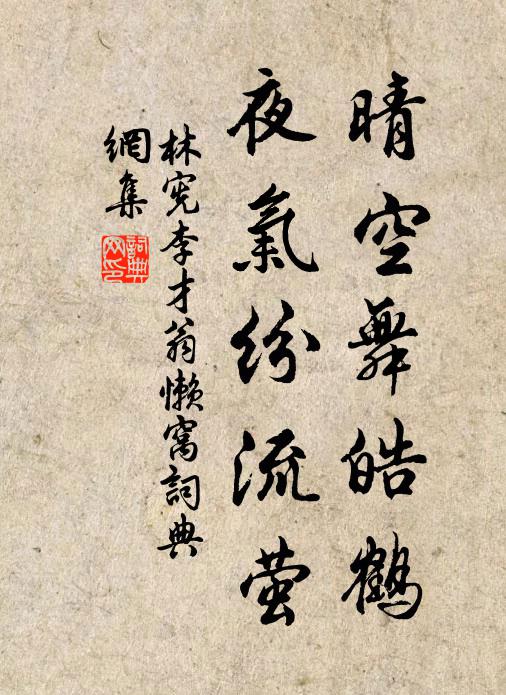 晴空舞皓鶴
夜氣紛流萤
林宪李才翁懒窩詞典
網集
詞典
网印